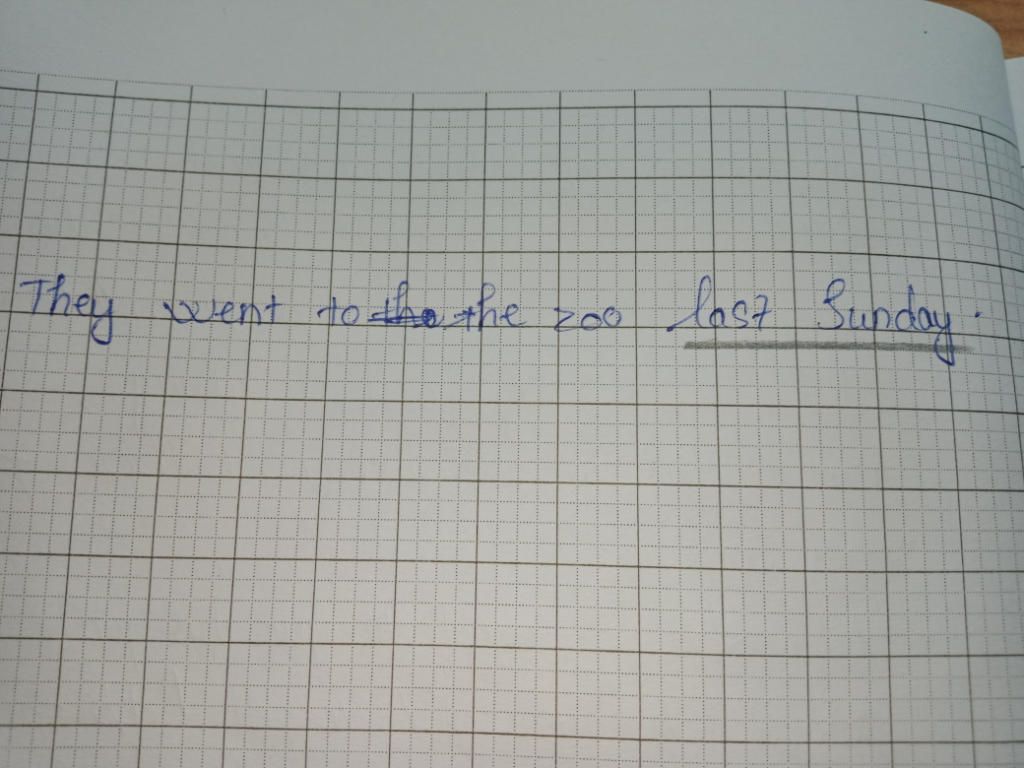 They went to the zoo last Sunday.